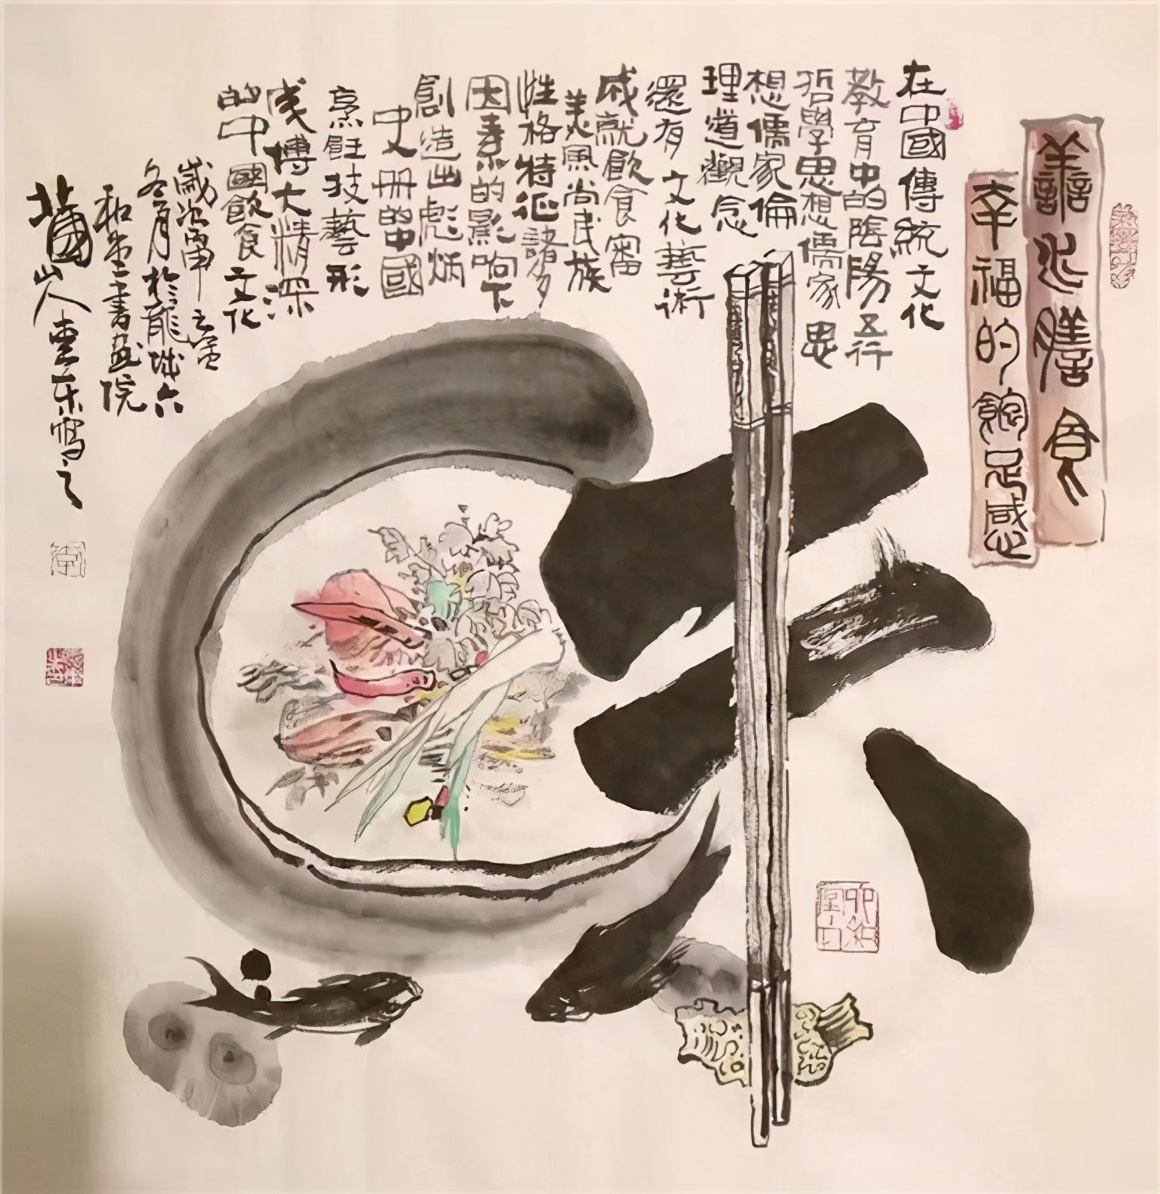 善心膳食
幸福的飽足感
在中國傳統文化
教育中的陰陽五行
哲學思想儒家思
想儒家倫
理道觀念
還有文化藝術
成就飲食審
美風尚民族
性格特征諸多
因素的影响下
創造出彪炳
史册的中國
烹飪技藝形
成博大精深
的中國飲食文化
歲次
冬月於龍城六
和堂書画院
山人東寫之
六和堂印